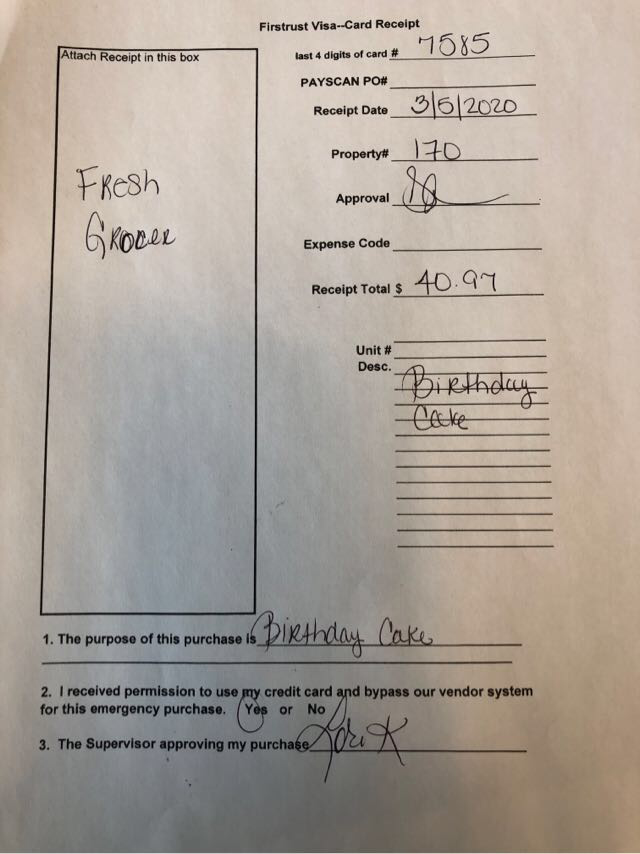 Firstrust Visa--Card Receipt
Attach Receipt in this box
last 4 digits of card # 7585
PAYSCAN PO#
Receipt Date 3/5/2020
Property# 170
Fresh
Grocer
Approval
Expense Code
Receipt Total $ 40.97
Unit #
Desc. Birthday
Cake
1. The purpose of this purchase is Birthday Cake
2. I received permission to use my credit card and bypass our vendor system
for this emergency purchase. Yes or No
3. The Supervisor approving my purchase Lori K